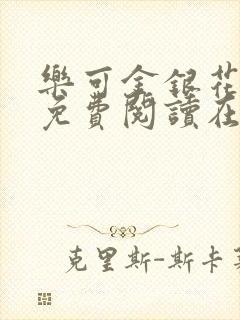 樂可金銀花
免費閱讀在
克里斯-斯卡